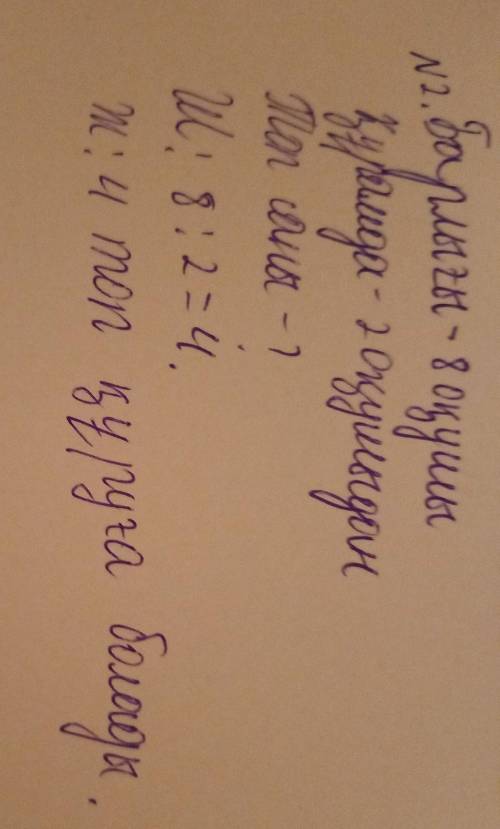 N2. Барлығы - 8 оқушы
Құрамда - 2 оқушыдан
Топ саны - ?
Ш: 8 : 2 = 4.
Ж: 4 топ құруға болады.